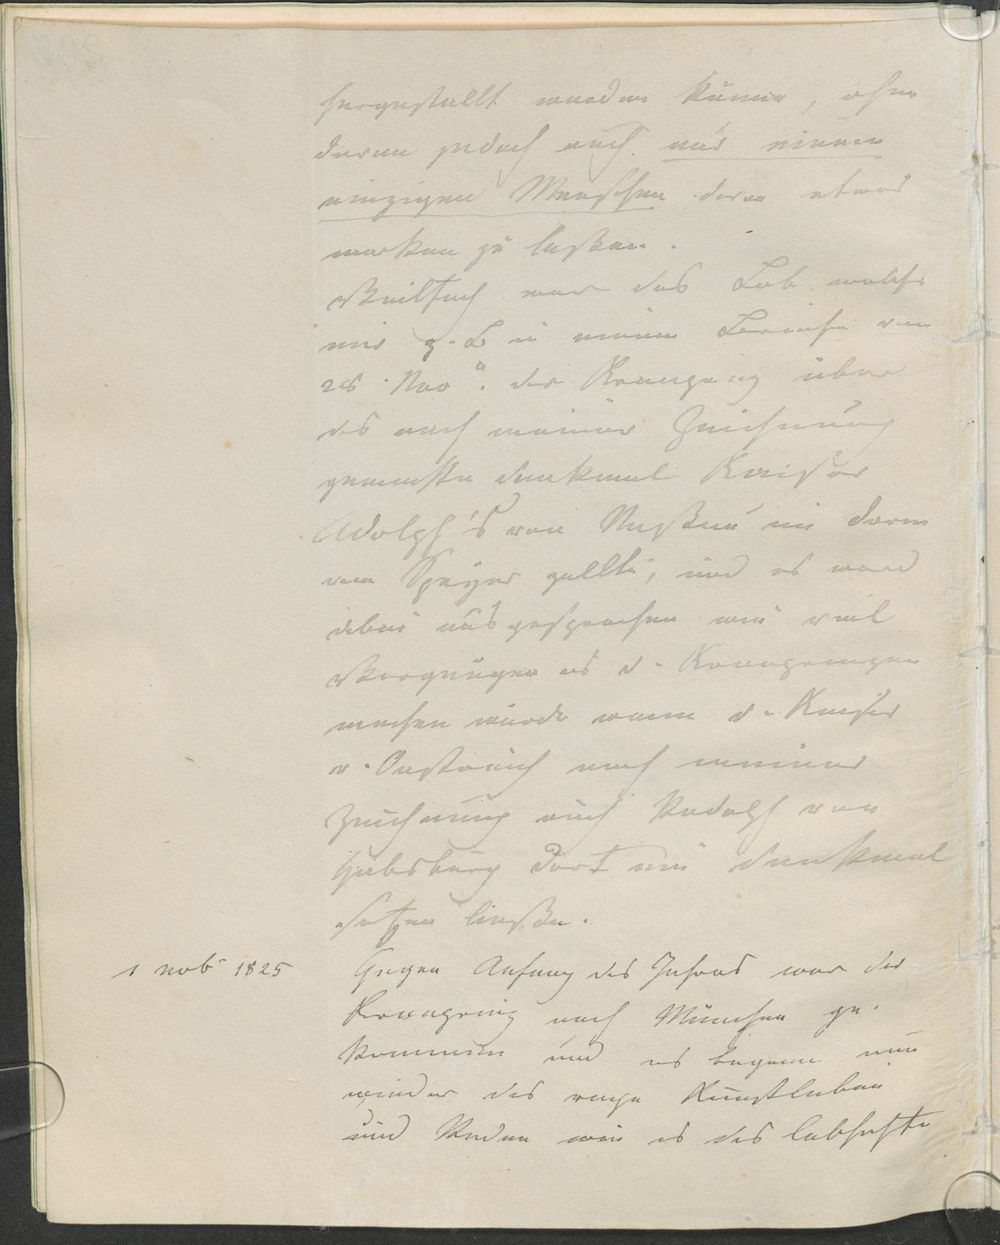 hergestellt werden könne, ohne
daran jedoch auch nur einem
einzigen Menschen davon etwas
merken zu laßen.
Vielfach war das Lob welches
mir z. B in einem Briefe vom
28 Nov. der Kronprinz über
das nach meiner Zeichnung
gemachte Denkmal Kaiser
Adolph's von Naßau im Dom
von Speyer zollte, und es ward
dabei ausgesprochen wie viel
Vergnügen es d. Kronprinzen
machen würde wenn d. Kaiser
v. Oestreich nach meiner
Zeichnung auch Rudolph von
Habsburg dort ein Denkmal
setzen ließe.
1 nob 1825 Gegen Anfang des Jahres war der
Kronprinz nach München ge-
kommen und es begann nun
wieder das rege Kunstleben
und Reden wie es das lebhafte